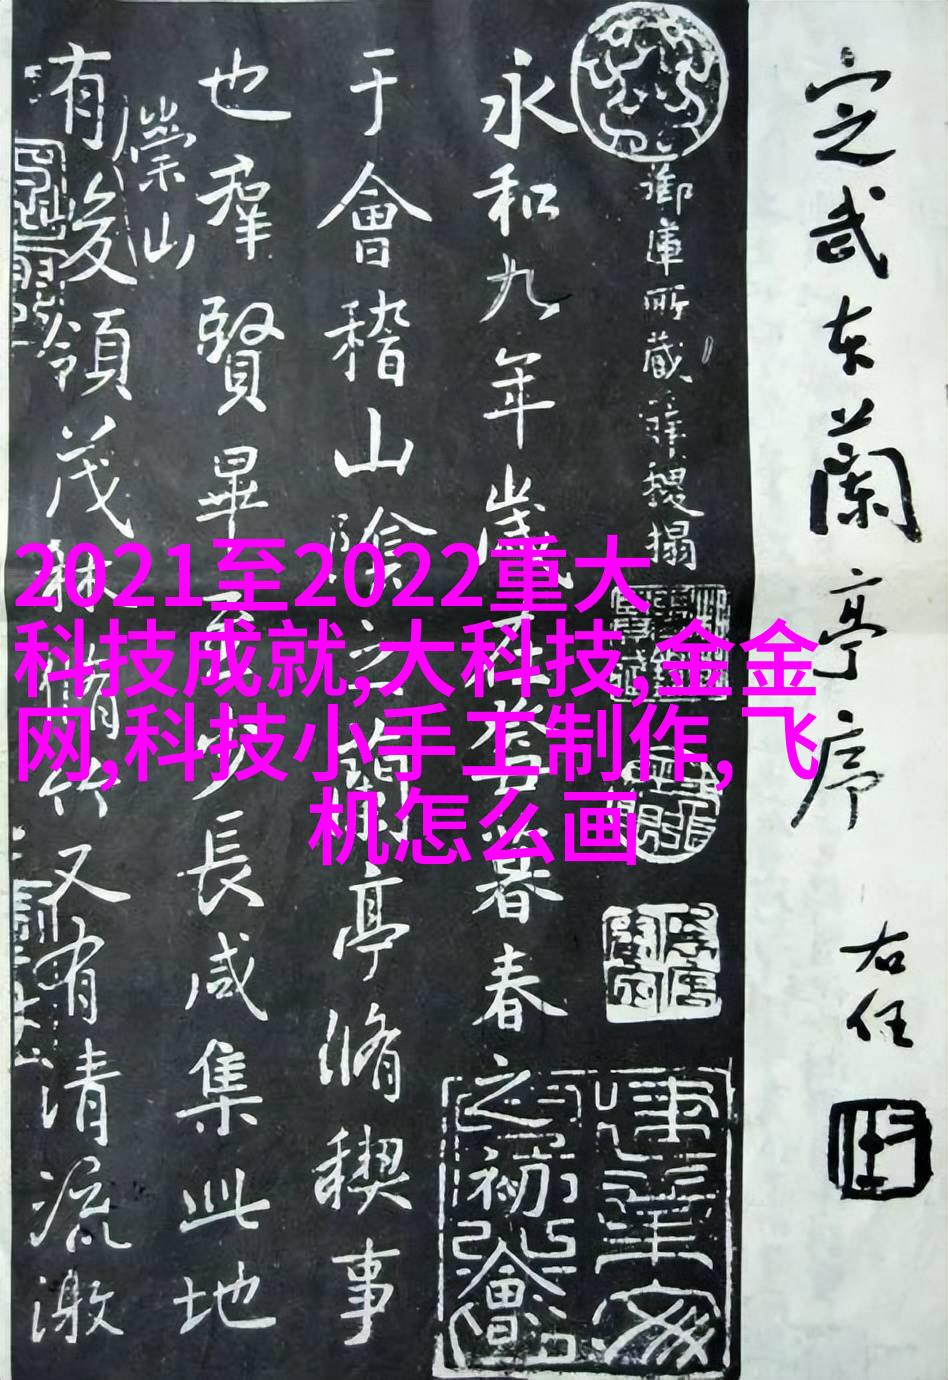 定武本蘭亭序
右任
御庫所藏薛稷搨
永和九年歲在癸丑暮春之初會
于會稽山陰之蘭亭脩稧事
也羣賢畢至少長咸集此地
崇山
有峻領茂林脩竹又有清流激
2021至2022重大
科技成就,大科技,金金
网,科技小手工制作,飞
机怎么画